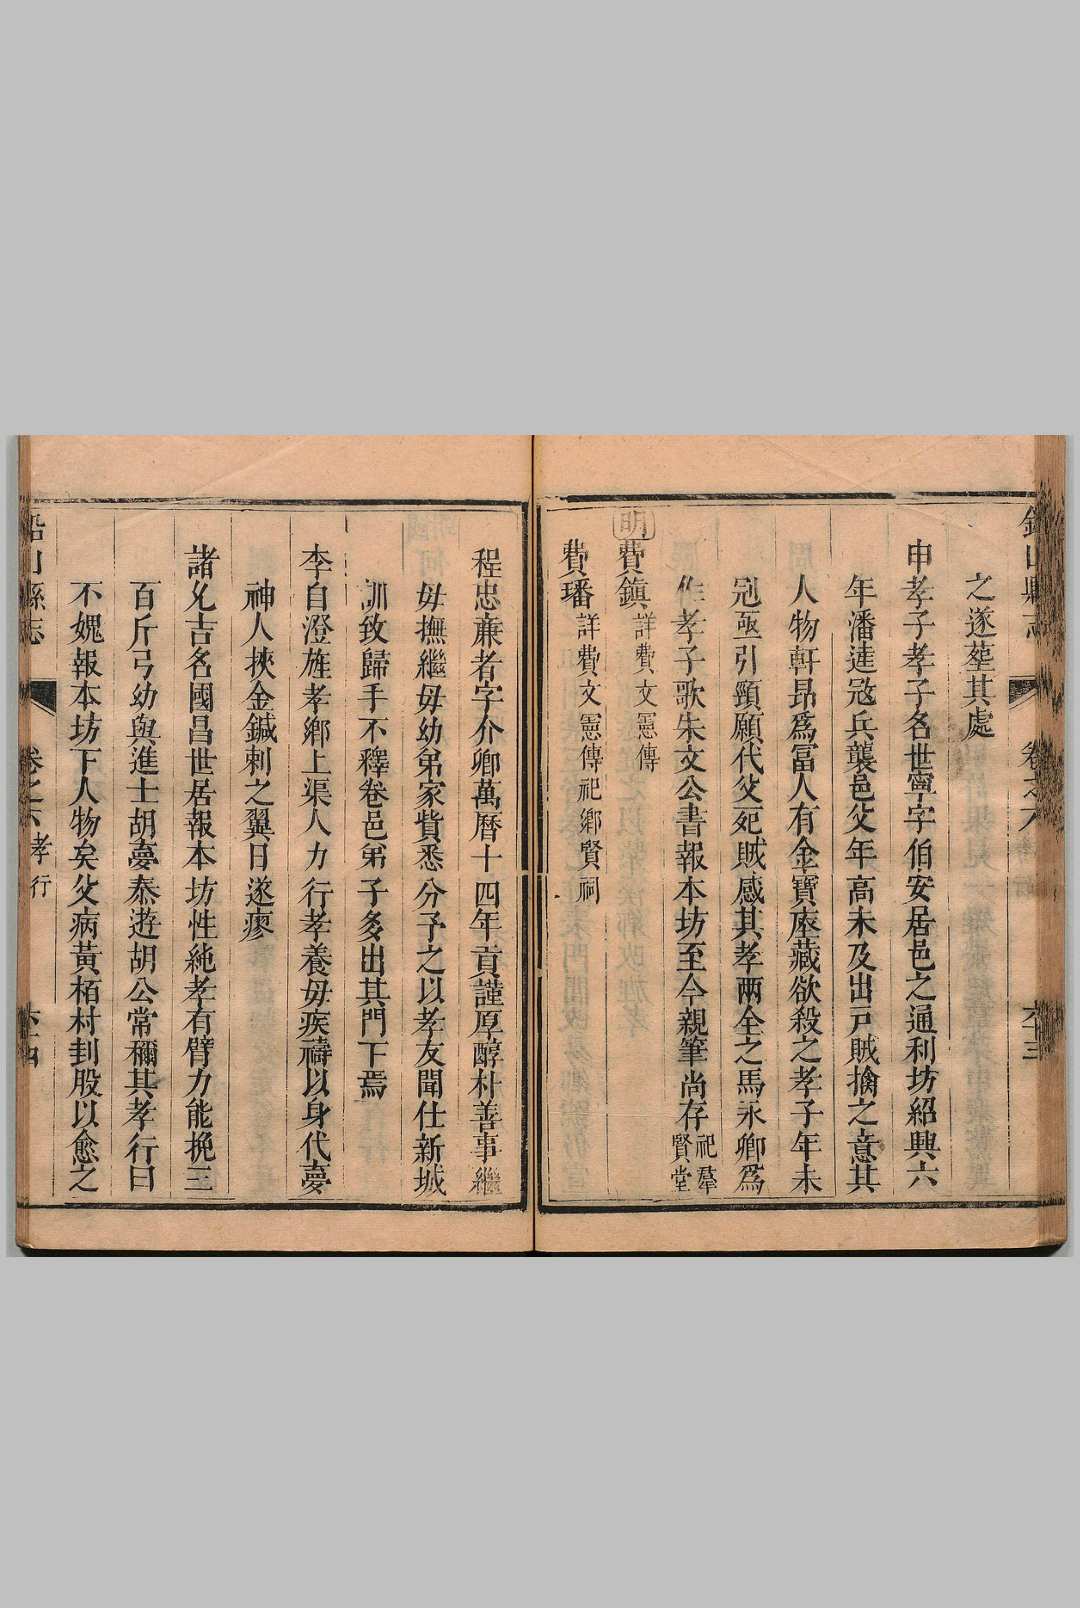 鉛山縣志 卷之六 六十三
之遂塟其處
申孝子孝子名世寧字伯安居邑之通利坊紹興六
年潘逹冦兵襲邑父年高未及出戸賊擒之意其
人物軒昂爲冨人有金寶窖藏欲殺之孝子年未
冠亟引頸願代父死賊感其孝兩全之馬永卿爲
作孝子歌朱文公書報本坊至今親筆尚存祀羣賢堂
明費鎮詳費文憲傳
費璠詳費文憲傳祀鄉賢祠
程忠亷者字介卿萬曆十四年貢謹厚醇朴善事繼
母撫繼母幼弟家貲悉分予之以孝友聞仕新城
訓致歸手不釋卷邑弟子多出其門下焉
李自澄旌孝鄉上渠人力行孝養母疾禱以身代夢
神人挾金鍼刺之翼日遂瘳
諸允吉名國昌世居報本坊性純孝有臂力能挽三
百斤弓幼與進士胡夢泰遊胡公常稱其孝行曰
不媿報本坊下人物矣父病黃栢村刲股以愈之
鉛山縣志 卷之六 孝行 六十四